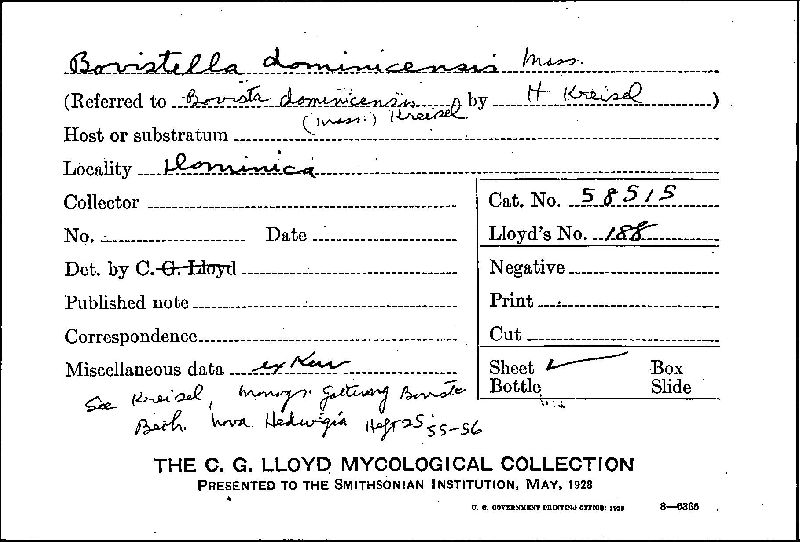 Bovistella dominicensis Mass.
(Referred to Bovista dominicensis by H Kreisel)
(Mass.) Kreisel
Host or substratum
Locality Dominica
Collector
Cat. No. 58515
No. Date
Lloyd's No. 188
Det. by C. G. Lloyd
Negative
Published note
Print
Correspondence
Cut
Miscellaneous data ex Kew
Sheet ✓ Box
Bottle Slide
See Kreisel, Monogr. Gattung Bovista
Beih. Nova Hedwigia Heft 25 55-56
THE C. G. LLOYD MYCOLOGICAL COLLECTION
PRESENTED TO THE SMITHSONIAN INSTITUTION, MAY, 1928
U. S. GOVERNMENT PRINTING OFFICE: 1928 8—6366